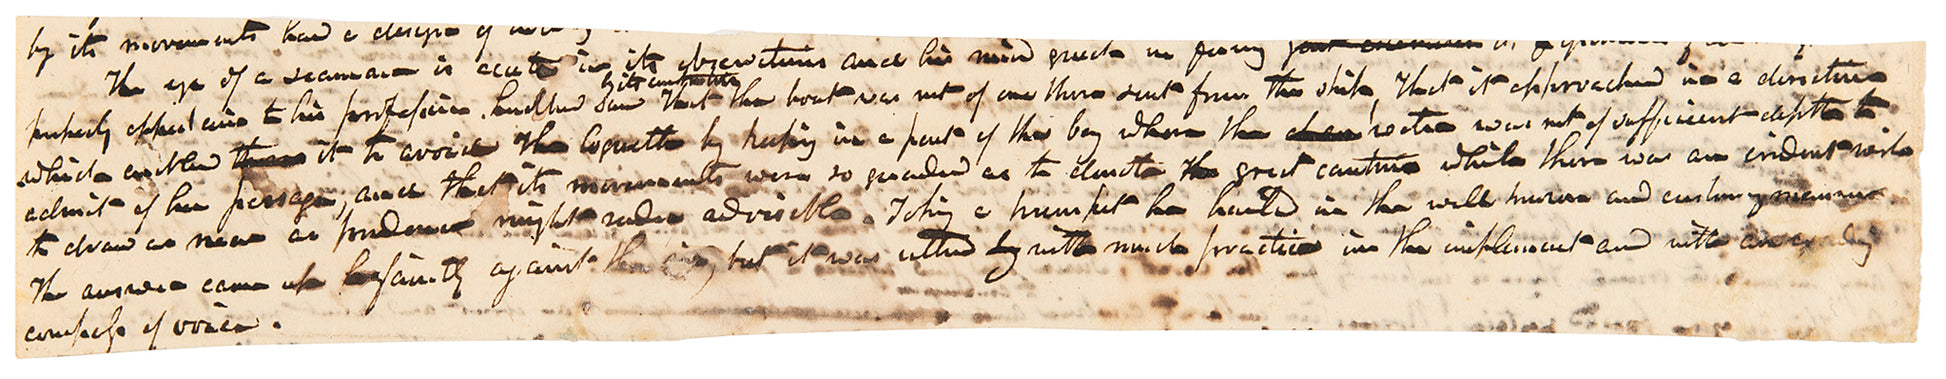 by its movements had a design of
The eye of a seaman is acute in its observations and his mind quick in
properly appertains to his profession. Ludlow saw that the boat was not of one those sent from the ship, That it approached in a direction
which enabled it to avoid the Coquette by keeping in a part of the bay where the water was not of sufficient depth to
admit of her passage, and that its movements were so guarded as to denote the great caution while there was an evident wish
to draw as near as prudence might render advisable. Taking a trumpet he hailed in the well known and customary manner
The answer came up faintly against the air, but it was uttered with much practice in the implement and with an exceeding
compass of voice.